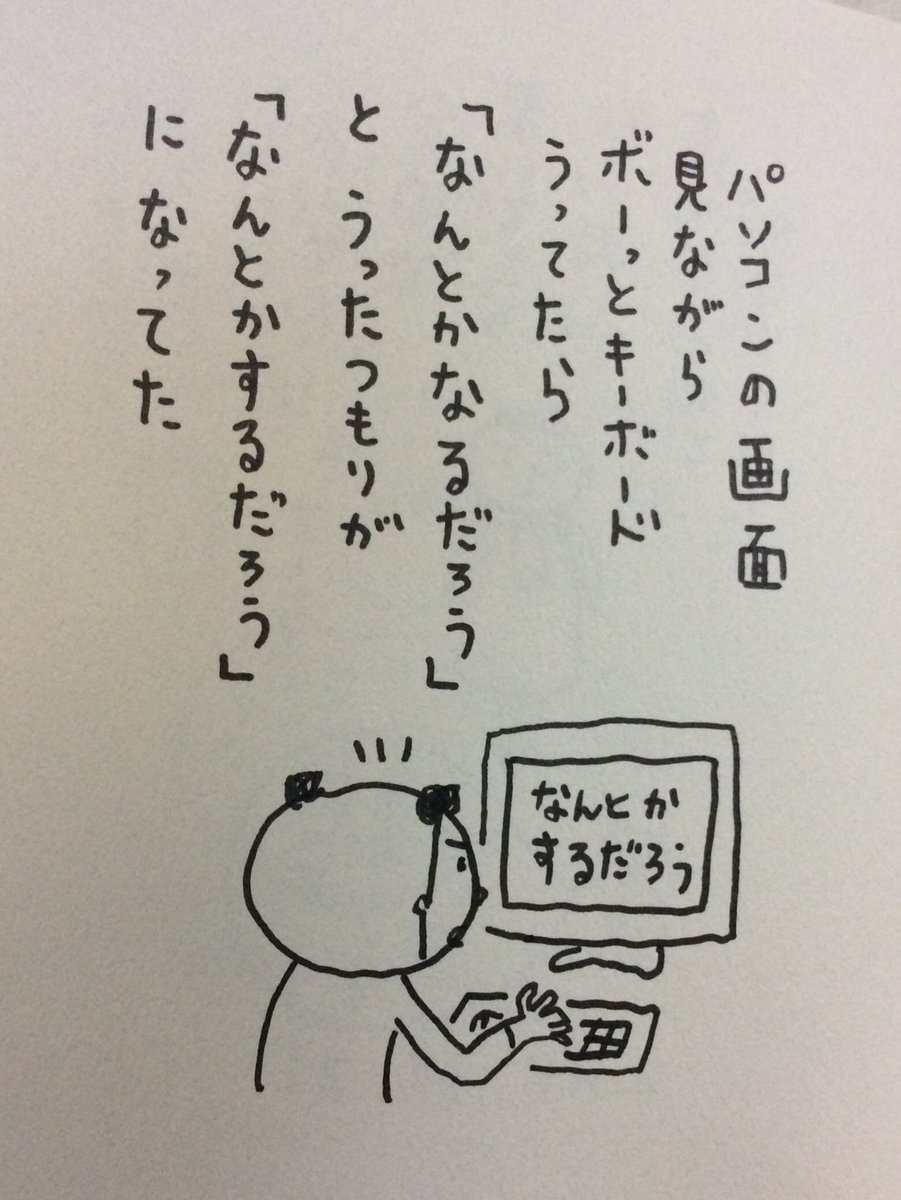 パソコンの画面
見ながら
ボーっとキーボード
うってたら
「なんとかなるだろう」
と うったつもりが
「なんとかするだろう」
に なってた
なんとか
するだろう